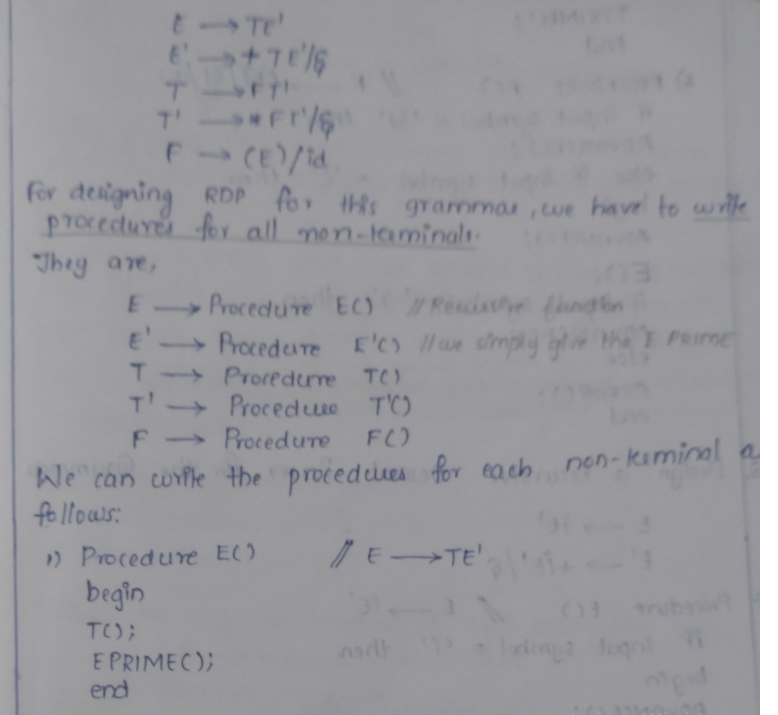 E → TE'
E' → + TE'/ε
T → FT'
T' → * FT'/ε
F → (E)/id
For designing RDP for this grammar, we have to write
procedures for all non-terminals.
They are,
E → Procedure E() // Recursive function
E' → Procedure E'() // we simply give the E PRIME
T → Procedure T()
T' → Procedure T'()
F → Procedure F()
We can write the procedures for each non-terminal a
follows:
1) Procedure E() // E → TE'
begin
T();
EPRIME();
end